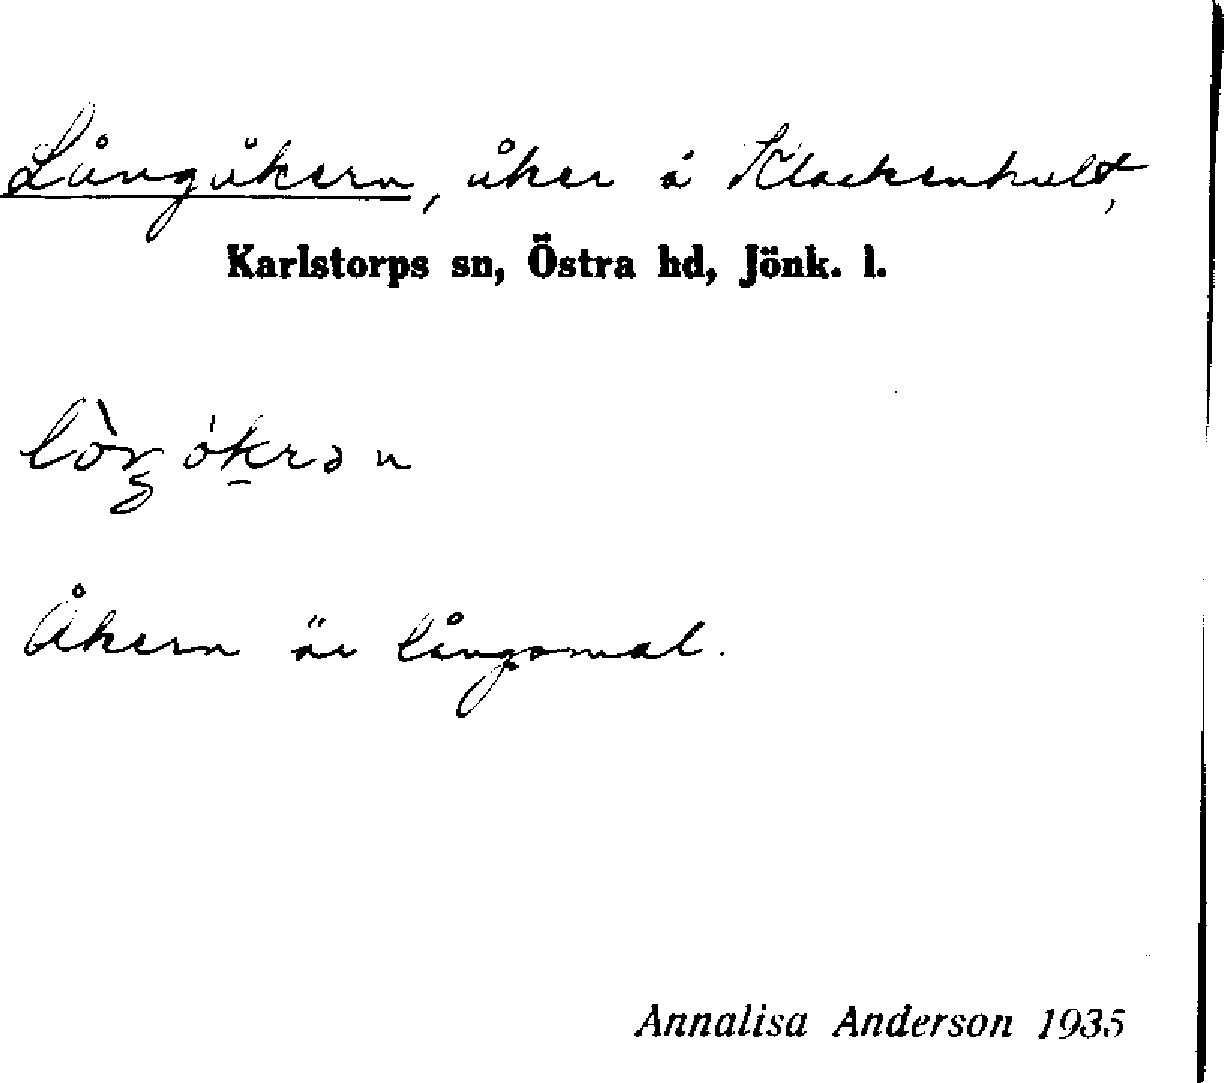 Långåkern, åker å Klackenhult,
Karlstorps sn, Östra hd, Jönk. l.
Åkern är långsmal.
Annalisa Anderson 1935